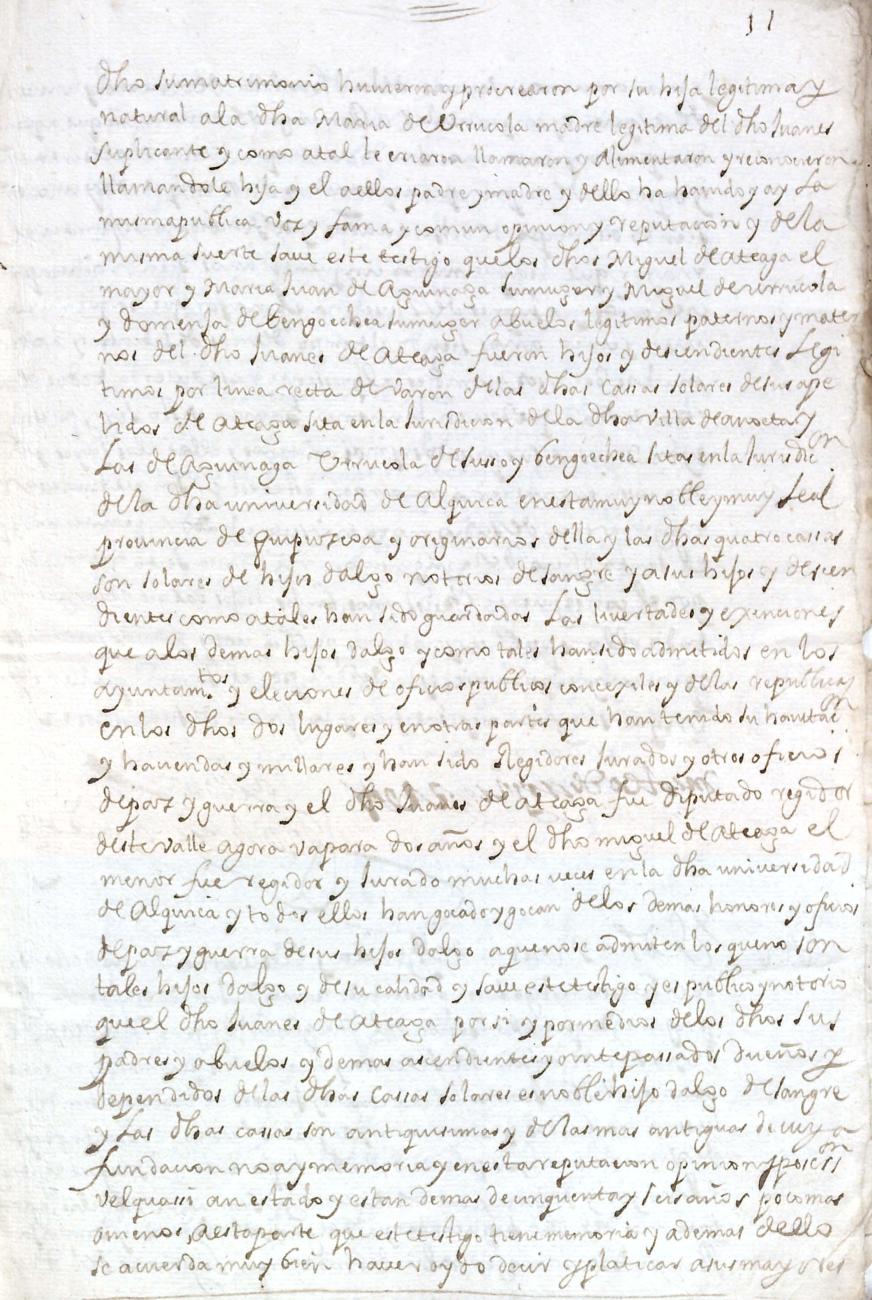 11
dho sumatrimonio huuieron y procrearon por su hija legitima y
natural ala dha Maria de Vrrucola madre legitima del dho Juanes
suplicante y como atal le criaron llamaron y alimentaron y reconocieron
llamandole hija y el aellos padre y madre y dello ha hauido y ay La
misma publica voz y fama y comun opinion y reputacion y dela
misma suerte saue este testigo quelos dhos Miguel de Ateaga el
mayor y Maria Juan de Aguinaga sumuger y Miguel de vrrucola
y domenja de bengoechea sumuger abuelos legitimos paternos y mater
nos del dho Juanes de Ateaga fueron hijos y descendientes Legi
timos por linea recta de varon delas dhas cassas solares de sus ape
llidos de Ateaga sita en la Jurisdicion de la dha villa de anoeta y
Las de Aguinaga Vrrucola de suso y bengoechea sitas en la Jurisdicon
de la dha universidad de Alquica en esta muy noble y muy Leal
provincia de Guipuzcoa y originarios della y las dhas quatro cassas
son solares de hijos dalgo notorios de sangre y a sus hijos y descen
dientes como atales han sido guardadas Las livertades y exenciones
que alos demas hijos dalgo y como tales han sido admitidos en los
ayuntamtos y eleciones de oficios publicos concexiles y delas republicas
en los dhos dos lugares y en otras partes que han tenido su hauitaon
y haciendas y millares y han sido Regidores Jurados y otros oficios
de paz y guerra y el dho Juanes de Ateaga fue diputado regidor
deste valle agora va para dos años y el dho miguel de Ateaga el
menor fue regidor y Jurado muchas veces en la dha universidad
de Alquica y todos ellos han gocado y gocan delos demas honores y oficios
de paz y guerra de sus hijos dalgo aque no se admiten los que no son
tales hijos dalgo y de su calidad y saue este testigo y es publico y notorio
que el dho Juanes de Ateaga por si y por medios delos dhos sus
padres y abuelos y demas ascendientes y antepassados dueños y
dependidos delas dhas cassas solares es noble hijo dalgo de sangre
y Las dhas cassas son antiquisimas y delas mas antiguas de cuya
fundacion no ay memoria y en esta reputacion opinion y poseon
velquassi an estado y estan demas de cinquenta y seis años poco mas
omenos aestaparte que este testigo tiene memoria y ademas dello
se acuerda muy bien hauer oydo decir y platicar asus mayores